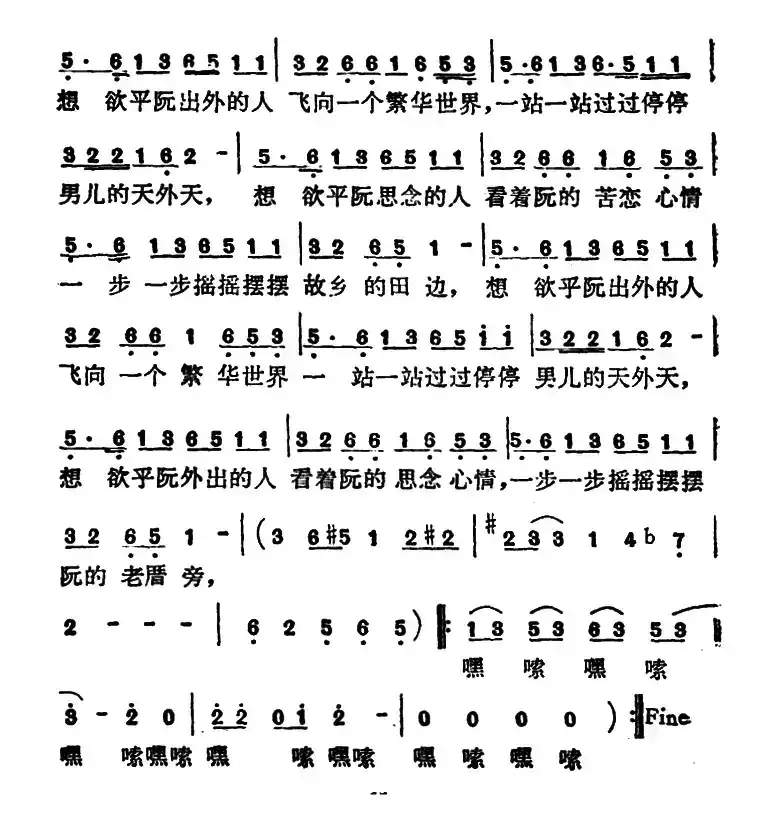 5· 6 1 3 6 5 1 1 | 3 2 6 6 1 6 5 3 | 5·6 1 3 6·5 1 1 |
想 欲平阮出外的人 飞向一个繁华世界，一站一站过过停停
3 2 2 1 6 2 - | 5· 6 1 3 6 5 1 1 | 3 2 6 6 1 6 5 3
男儿的天外天， 想 欲平阮思念的人 看着阮的 苦恋 心情
5· 6 1 3 6 5 1 1 | 3 2 6 5 1 - | 5· 6 1 3 6 5 1 1 |
一 步 一步摇摇摆摆 故乡 的田 边， 想 欲平阮出外的人
3 2 6 6 1 6 5 3 | 5· 6 1 3 6 5 i i | 3 2 2 1 6 2 - |
飞向 一个 繁 华世界 一 站一站过过停停 男儿的天外天，
5· 6 1 3 6 5 1 1 | 3 2 6 6 1 6 5 3 | 5·6 1 3 6 5 1 1 |
想 欲平阮外出的人 看着阮的 思念 心情，一步一步摇摇摆摆
3 2 6 5 1 - | ( 3 6 #5 1 2 #2 | #2 3 3 1 4 b7 |
阮的 老厝 旁，
2 - - - | 6 2 5 6 5 ) ‖: 1 3 5 3 6 3 5 3 |
嘿 嗦 嘿 嗦
3 - 2 0 | 2 2 0 i 2 - | 0 0 0 0 ) :‖ Fine
嘿 嗦嘿嗦 嘿 嗦 嘿嗦 嘿 嗦 嘿 嗦